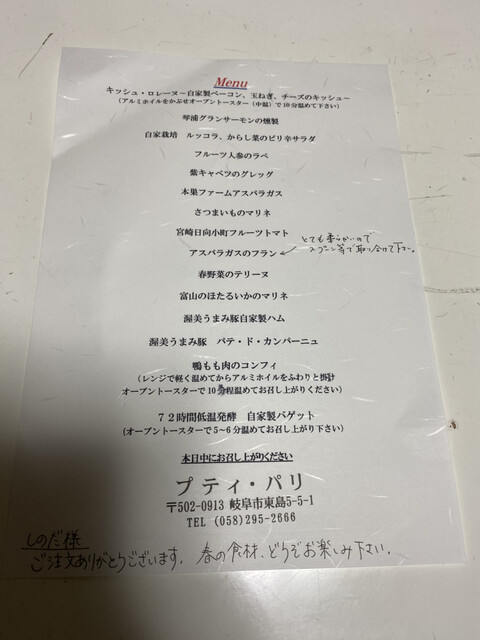 Menu
キッシュ・ロレーヌ－自家製ベーコン、玉ねぎ、チーズのキッシュ－
(アルミホイルをかぶせオーブントースター（中温）で10分温めて下さい)
琴浦グランサーモンの燻製
自家栽培　ルッコラ、からし菜のピリ辛サラダ
フルーツ人参のラペ
紫キャベツのグレッグ
本巣ファームアスパラガス
さつまいものマリネ
宮崎日向小町フルーツトマト
アスパラガスのフラン
とても柔らかいので
スプーン等で取り分けて下さい。
春野菜のテリーヌ
富山のほたるいかのマリネ
渥美うまみ豚自家製ハム
渥美うまみ豚　パテ・ド・カンパーニュ
鴨もも肉のコンフィ
(レンジで軽く温めてからアルミホイルをふわりと掛け
オーブントースターで10分程温めてお召し上がりください)
７２時間低温発酵　自家製バゲット
(オーブントースターで5～6分温めてお召し上がり下さい)
本日中にお召し上がりください
プティ・パリ
〒502-0913 岐阜市東島5-5-1
TEL (058)295-2666
しのだ様
ご注文ありがとうございます。春の食材、どうぞお楽しみ下さい。